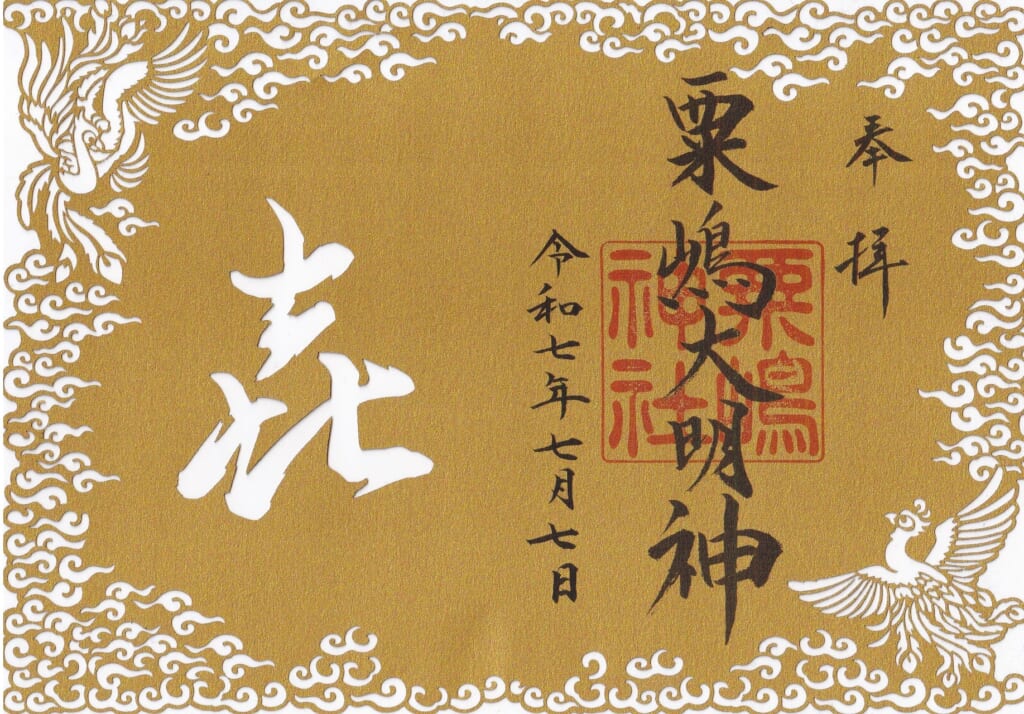 奉拝
粟嶋大明神
粟嶋
神社
令和七年七月七日
㐂